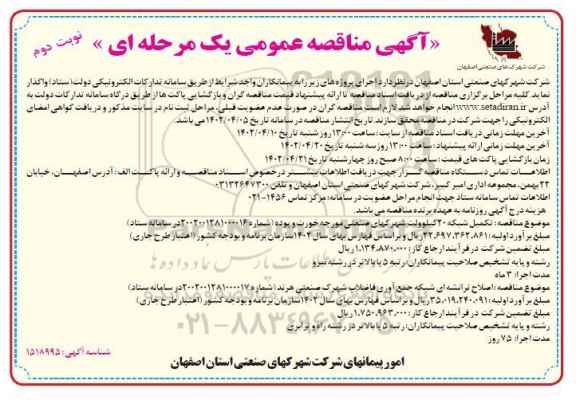 «آگهی مناقصه عمومی یک مرحله ای»
نوبت دوم
شرکت شهرک‌های صنعتی اصفهان
شرکت شهرکهای صنعتی استان اصفهان در نظر دارد اجرای پروژه های زیر را به پیمانکاران واجد شرایط از طریق سامانه تدارکات الکترونیکی دولت (ستاد) واگذار
نماید. کلیه مراحل برگزاری مناقصه از دریافت اسناد مناقصه تا ارائه پیشنهاد قیمت مناقصه گران و بازگشایی پاکت ها از طریق درگاه سامانه تدارکات دولت به
آدرس www.setadiran.ir انجام خواهد شد. لازم است مناقصه گران در صورت عدم عضویت قبلی، مراحل ثبت نام در سایت مذکور و دریافت گواهی امضای
الکترونیکی را جهت شرکت در مناقصه محقق سازند. تاریخ انتشار مناقصه در سامانه تاریخ ۱۴۰۲/۰۴/۰۵ می باشد.
آخرین مهلت زمانی دریافت اسناد مناقصه از سایت: ساعت ۱۳:۰۰ روز شنبه تاریخ ۱۴۰۲/۰۴/۱۰
آخرین مهلت زمانی ارائه پیشنهاد: ساعت ۱۳:۰۰ روز سه شنبه تاریخ ۱۴۰۲/۰۴/۲۰
زمان بازگشایی پاکت های قیمت: ساعت ۸:۰۰ صبح روز چهارشنبه تاریخ ۱۴۰۲/۰۴/۲۱
اطلاعات تماس دستگاه مناقصه گزار جهت دریافت اطلاعات بیشتر در خصوص اسناد مناقصه و ارائه پاکت الف: آدرس اصفهان، خیابان
۲۲ بهمن، مجموعه اداری امیر کبیر، شرکت شهرکهای صنعتی استان اصفهان و تلفن ۰۳۱۳۲۶۴۷۳۰۰
اطلاعات تماس سامانه ستاد جهت انجام مراحل عضویت در سامانه: مرکز تماس ۱۴۵۶-۰۲۱
هزینه درج آگهی روزنامه به عهده برنده مناقصه می باشد.
موضوع مناقصه: تکمیل شبکه ۲۰ کیلوولت شهرکهای صنعتی مورچه خورت و بوده (شماره در سامانه ستاد)
مبلغ برآورد اولیه: ۲۲،۶۹۷،۳۶۲،۸۶۱ ریال و بر اساس فهارس بهای سال ۱۴۰۲ سازمان برنامه و بودجه کشور (اعتبار طرح جاری)
مبلغ تضمین شرکت در فرآیند ارجاع کار: ۱،۱۳۴،۸۷۰،۰۰۰ ریال
رشته و پایه تشخیص صلاحیت پیمانکاران: رتبه ۵ یا بالاتر در رشته نیرو
مدت اجرا: ۳ ماه
موضوع مناقصه: اصلاح ترانشه ای شبکه جمع آوری فاضلاب شهرک صنعتی هرند (شماره در سامانه ستاد)
مبلغ برآورد اولیه: ۳۵،۰۱۹،۲۴۰،۰۹۱ ریال و بر اساس فهارس بهای سال ۱۴۰۲ سازمان برنامه و بودجه کشور (اعتبار طرح جاری)
مبلغ تضمین شرکت در فرآیند ارجاع کار: ۱،۷۵۰،۹۶۳،۰۰۰ ریال
رشته و پایه تشخیص صلاحیت پیمانکاران: رتبه ۵ یا بالاتر در رشته راه و ترابری
مدت اجرا: ۷۵ روز
امور پیمانهای شرکت شهرکهای صنعتی استان اصفهان
شناسه آگهی: ۱۵۱۸۹۹۵
۰۲۱-۸۸۳۴۹۶۷۰